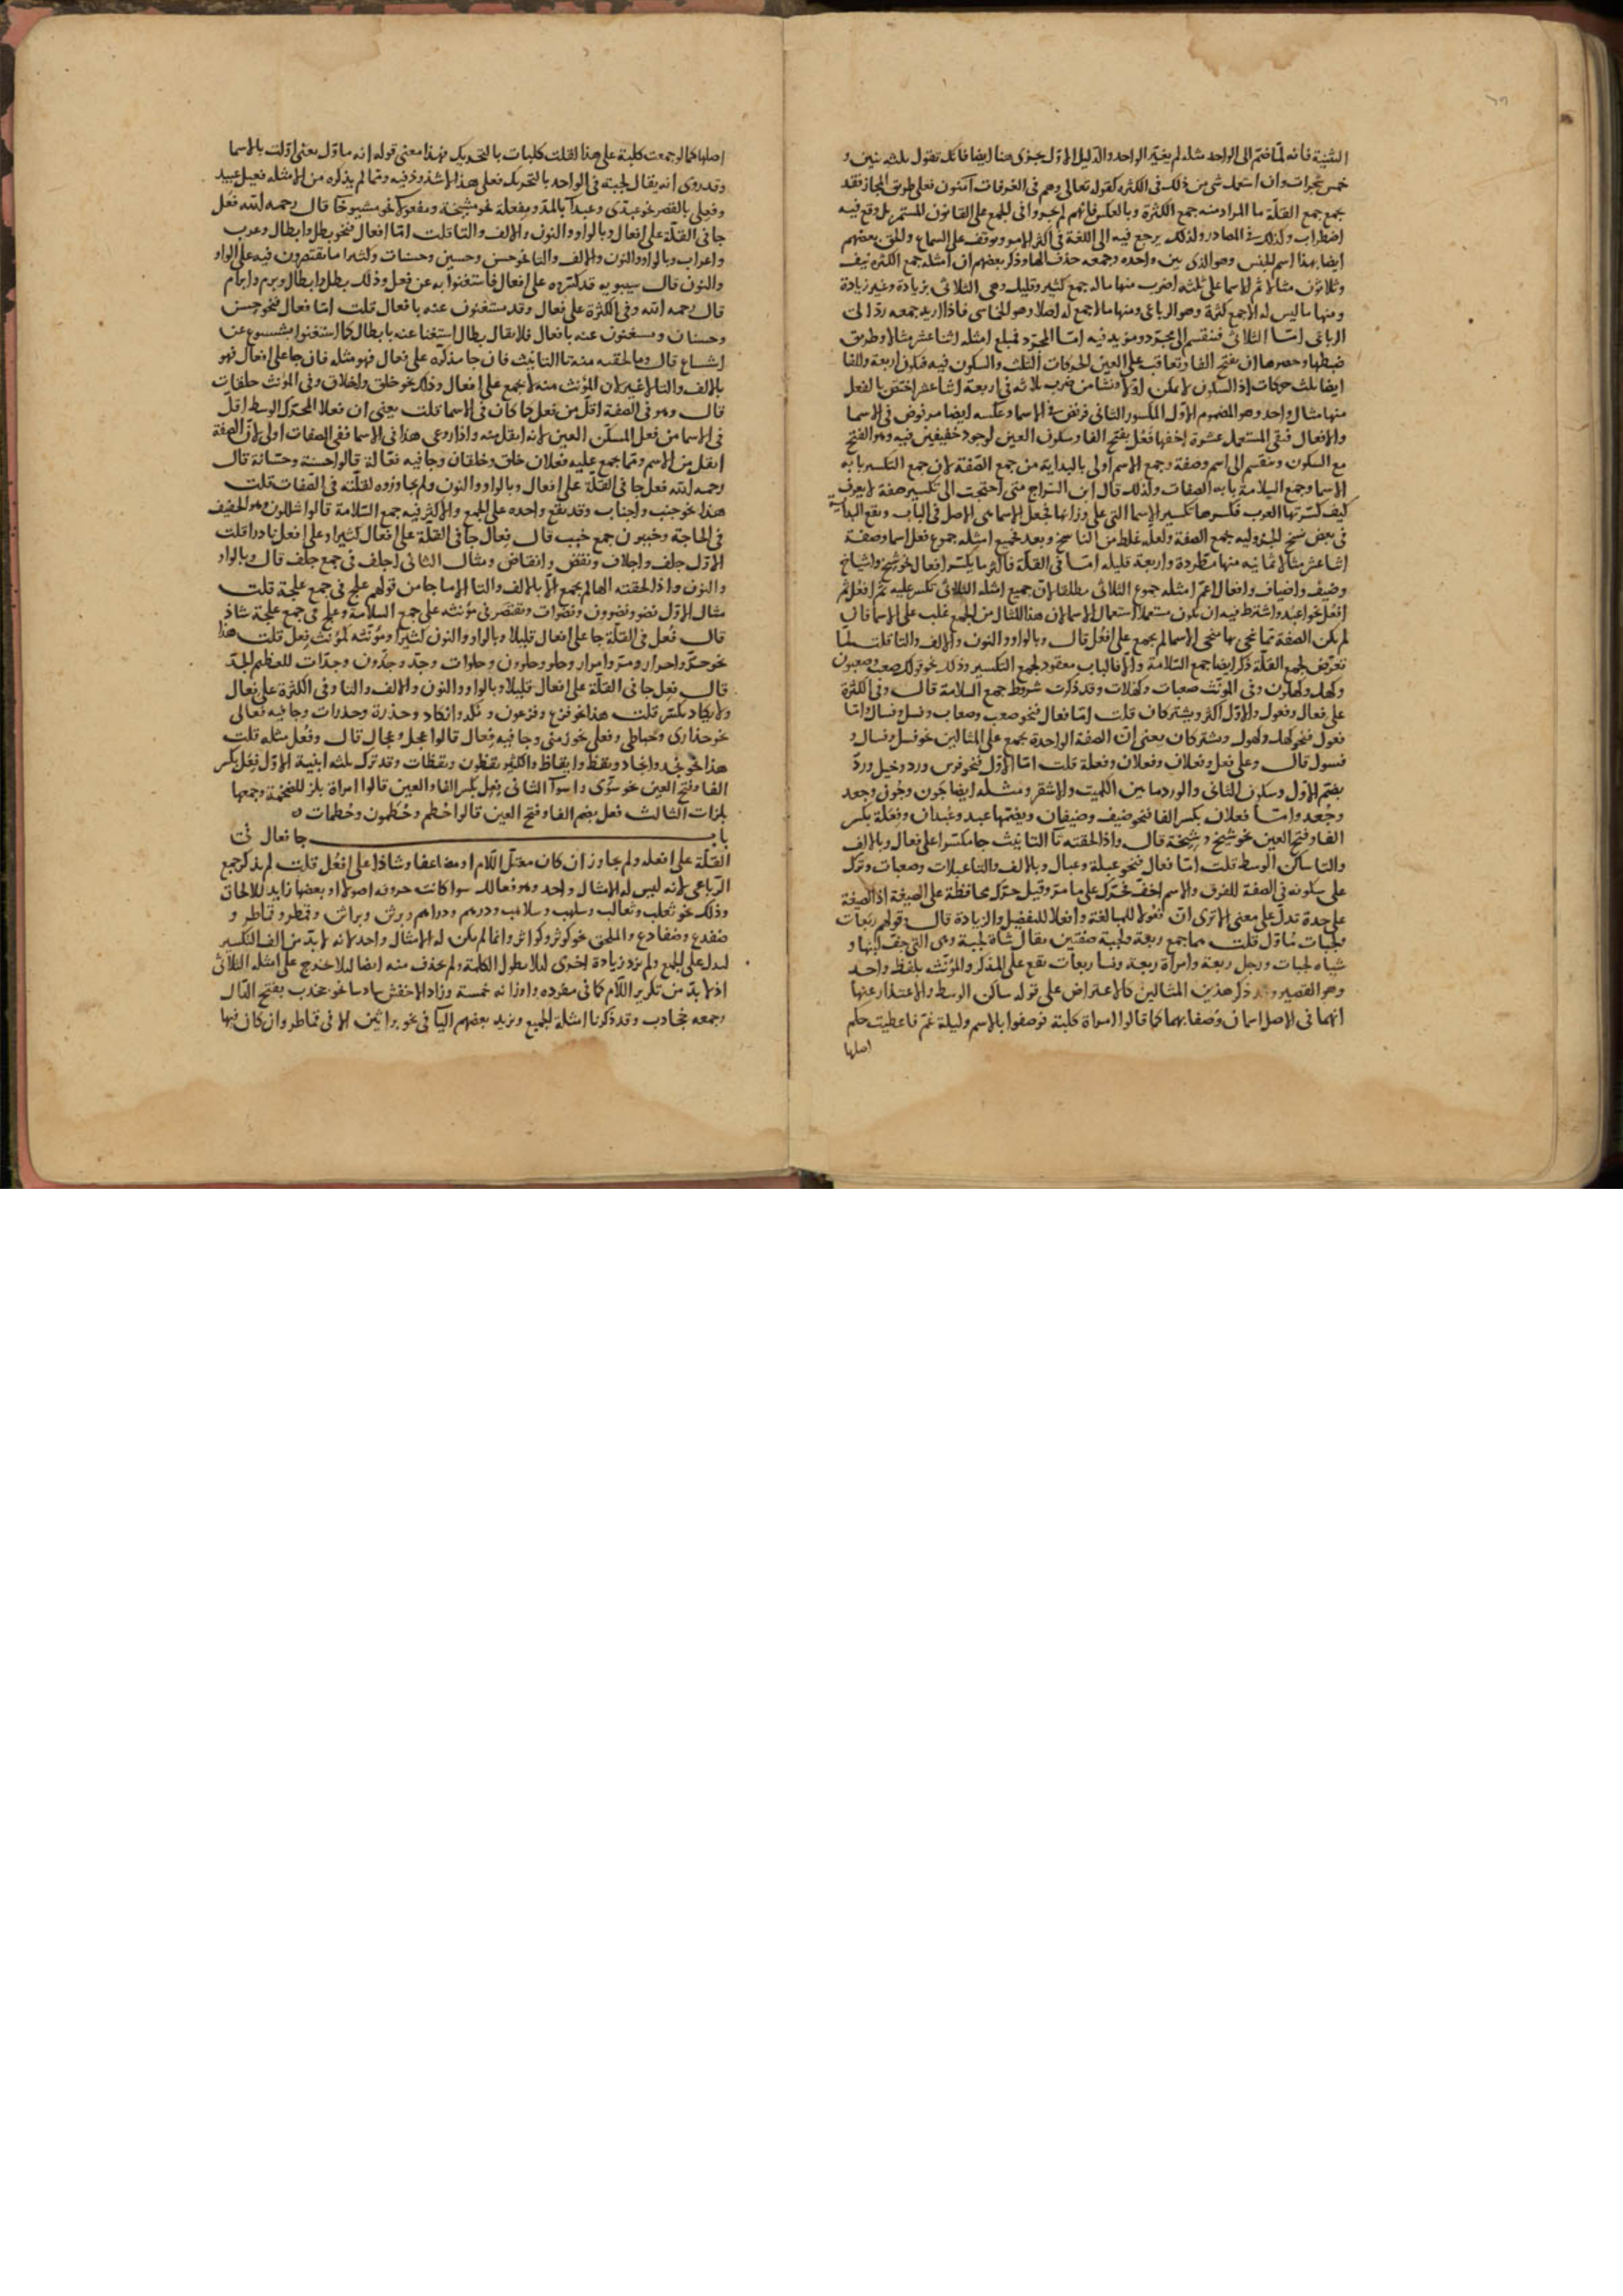 التثنية فانه لما ضم الى الواحد مثله لم يغير الواحد والدليل الاول يجرى هنا ايضا فانك تقول ثلثه بنين و
خمس شجرات وان استعمل شى من ذلك فى الكثره كقوله تعالى وهم فى الغرفات آمنون فعلى طريق المجاز فقد
يجمع جمع القلة ما المراد منه جمع الكثرة وبالعكس فانهم لم يجروا فى الجمع على القانون المستمر بل وقع فيه
اضطراب وكذلك فى المصادر ولذلك يرجع فيه الى اللغة فى اكثر الامر ويوقف على السماع والحق بعضهم
ايضا بهذا اسم الجنس وهو الذى بين واحده وجمعه حذف الها وذكر بعضهم ان امثله جمع الكثره نيف
وثلاثون مثالا ثم الاسما على ثلثه اضرب منها ماله جمع كثير وقليل وهى الثلاثى بزيادة وغير زيادة
ومنها ما ليس له الا جمع كثرة وهو الرباعى ومنها مالا جمع له اصلا وهو الخماسى فاذا اريد جمعه رد الى
الرباعى امّا الثلاثى فينقسم الى مجرد ومزيد فيه امّا المجرد فمبلغ امثله اثنا عشر مثالا وطريق
ضبطها وحصرها ان بفتح الفا وتعاقب على العين الحركات الثلث والسكون فيه فيكون اربعة وللفا
ايضا ثلث حركات اذ السكون لا يمكن اولا ونشا من ضرب ثلاثه فى اربعة اثنا عشر اختص بالفعل
منها مثال واحد وهو المضموم الاول المكسور الثانى فرفض فى الاسما وعكسه ايضا مرفوض فى الاسما
والافعال فبقى المستعمل عشرة اخفها فَعْل بفتح الفا وسكون العين لوجود خفيفين فيه وهو الفتح
مع السكون وينقسم الى اسم وصفة وجمع الاسم اولى بالبداية من جمع الصفة لان جمع التكسير بابه
الاسما وجمع السلامة بابه الصفات ولذلك قال ابن السراج متى احتجت الى تكسير صفة لا يعرف
كيف كسرتها العرب فكسرها تكسير الاسما التى على وزانها فجعل الاسما هى الاصل فى الباب ويقع البداية
فى بعض نسخ الجزوليه بجمع الصفة ولعله غلط من الناسخ وبعد فجميع امثله جموع فعل اسما وصفة
اثنا عشر مثالا ثمانيه منها مطردة واربعة قليله امّا فى القلة فاكثر ما يكسر افعال نحو شيخ واشياخ
وضيف واضياف وافعال اعمّ امثله جموع الثلاثى مطلقا لان جميع امثله الثلاثى تكسر عليه ثم افعل ثم
افعل نحو اعبد واشترط فيه ان يكون مستعملا استعمال الاسما لان هذا المثال من الجمع غلب على الاسما فان
لم يكن الصفة مما نحى بها منحى الاسما لم يجمع على افعُل قال وبالواو والنون والالف والتا قلت لما
تعرض لجمع القلة ذكر ايضا جمع السلامة والا فالباب معقود لجمع التكسير وذلك نحو قولك صعب وصعبون
وكهل وكهلون وفى المؤنث صعبات وكهلات وقد ذكرت شروط جمع السلامة قال وفى الكثرة
على فعال وفعول والاول اكثر ويشتركان قلت امّا فعال فنحو صعب وصعاب وفسل وفسال وامّا
فعول فنحو كهل وكهول ويشتركان يعنى ان الصفة الواحدة يجمع على المثالين نحو فسل وفسال و
فسول قال وعلى فعل وفعلان وفعلان وفعلة قلت امّا الاول فنحو فرس ورد وخيل وردٌ
بضم الاول وسكون الثانى والورد ما بين الكميت والاشقر ومثله ايضا جَون وجُون وجعد
وجُعد وامّا فعلان بكسر الفا فنحو ضيف وضيفان وبضمها عبد وعُبدان وفعَلة بكسر
الفا وفتح العين نحو شيخ وشِيَخة قال واذا لحقته تا التانيث جا مكسرا على فعال وبالالف
والتا ساكن الوسط قلت امّا فعال فنحو عبلة وعبال وبالالف والتا عبلات وصعبات وترك
على سكونه فى الصفة للفرق والاسم اخف فحُرّك على ما مر وقيل حرّك محافظة على الصيغة اذ الصيغة
على حدة تدلّ على معنى الا ترى ان فعولا للمبالغة وافعلا للتفضيل والزيادة قال وقولهم ربَعات
ولجبات مُاوّل قلت هما جمع ربعة ولجبة صفتين يقال شاة لجبة وهى التى جف لبنها و
شياه لجبات ورجل ربعة وامراة ربعة ونسا ربعات يقع على المذكر والمؤنث بلفظ واحد
وهو القصير و ذكر هذين المثالين كالاعتراض على قوله ساكن الوسط والاعتذار عنها
انهما فى الاصل اسمان وُصفا بهما كما قالوا امراة كلبة فوصفوا بالاسم وليلة غمّ فاعطيت حكم
اصلها
اصلها كما لو جمعت كلبة على هذا لقلت كلبات بالتحريك فهذا معنى قوله انه ماوّل يعنى اوّلت بالاسما
وقد روى انه يقال لجبة فى الواحد بالتحريك فعلى هذا لا شذوذ فيه ومما لم يذكره من الامثله فعيل عبيد
وفعِلّى بالقصر نحو عبدّى وعبدّا بالمد ومفعلة نحو مشيخة ومفعولا نحو مشيوخا قال رحمه الله فعل
جا فى القلة على افعال وبالواو والنون والالف والتا قلت امّا افعال فنحو بطل وابطال وعرب
واعراب وبالواو والنون والالف والتا نحو حسن وحسنين وحسنات وكثيرا ما يقتصرون فيه على الواو
والنون قال سيبويه قد كسروه على افعال فاستغنوا به عن فعل وذلك بطل وابطال وبرم وابرام
قال رحمه الله وفى الكثرة على فعال وقد يستغنون عنه بافعال قلت امّا فعال فنحو حسن
وحسان ويستغنون عنه بافعال فلا يقال بطال استغنا عنه بابطال كما استغنوا بشسوع عن
اشساع قال وما لحقته منه تا التانيث فان جا مذكره على فعال فهو مثله فان جا على افعال فهو
بالالف والتا لا غير لان المؤنث منه لا يجمع على افعال وذلك نحو خلق واخلاق وفى المؤنث خلقات
قال وهو فى الصفة اقل من فعل جا كان فى الاسما قلت يعنى ان فعلا المحرك الوسط اقل
فى الاسما من فعل المسكّن العين لانه اثقل منه واذا روعى هذا فى الاسما ففى الصفات اولى لان الصفة
اثقل من الاسم ومما جمع عليه فعلان خلق وخلقان وجا فيه فعّالة قالوا حسنة وحسّانة قال
رحمه الله فعل جا فى القلة على افعال وبالواو والنون ولم يجاوزوه لقلته فى الصفات قلت
هذا نحو جنب واجناب وقد يقع واحده على الجمع والاكثر فيه جمع السلامة قالوا شللون وهو الخفيف
فى الحاجة وجنبون جمع جنب قال فِعال جا فى القلة على افعال كثيرا وعلى افعل نادرا قلت
الاول جلف واجلاف ونقض وانقاض ومثال الثانى اجلف فى جمع جلف قال وبالواو
والنون واذا لحقته الها لم يجمع الا بالالف والتا الا ما جا من قولهم علج فى جمع علجة قلت
مثال الاول نضو ونضوون ونضوات ويقتصر فى مؤنثه على جمع السلامة وعلج فى جمع علجة شاذ
قال فُعل فى القلة جا على افعال قليلا وبالواو والنون كثيرا ومؤنثه كمؤنث فِعل قلت هذا
نحو حرّ واحرار ومرّ وامرار وحلو وحلوون وحلوات وجدّ وجدّون وجدّات للعظيم الجدّ
قال فعِل جا فى القلة على افعال قليلا وبالواو والنون والالف والتا وفى الكثرة على فِعال
ولا يكاد يكسر قلت هذا نحو فزع وفزعون و نكد وانكاد وحذرة وحذرات وجا فيه فعالى
نحو حذارى وحباطى وفعلى نحو زمنى وجا فيه فِعال قالوا عجل وعجال قال وفَعُل مثله قلت
هذا نحو نجد وانجاد ويقظ وايقاظ والكثير يقظون ويقظات وقد ترك ثلثه ابنية الاوّل فِعَل بكسر
الفا وفتح العين نحو سوًى واسوآ الثانى فِعِل بكسر الفا والعين قالوا امراة بلز للضخمة وجمعها
بلزات الثالث فعل بضم الفا وفتح العين قالوا حُطم وحُطمون وحُطمات ٥
باب جا فعال فى
القلة على افعلة ولم يجاوز ان كان معتل اللام او مضاعفا وشاذا على افعُل قلت لم يذكر جمع
الرباعى لانه ليس له الا مثال واحد وهو فعالل سوا كانت حروفه اصولا او بعضها زايدا للالحاق
وذلك نحو ثعلب وثعالب وسلهب وسلاهب ودرهم ودراهم وبرثن وبراثن وقمطر وقماطر و
ضفدع وضفادع والملحق نحو كوثر وكواثر وانما لم يكن له الا مثال واحد لانه لا بدّ من الف التكسير
ليدل على الجمع ولم يزد زيادة اخرى ليلا يطول الكلمة ولم يحذف منه ايضا ليلا يخرج على امثله الثلاثى
اذ لا بدّ من تكرير اللام كما فى مفرده واوزانه خمسة وزاد الاخفش سادسا نحو جخدب بفتح الدال
وجمعه جخادب وقد ذكرنا امثلة الجميع ويزيد بعضهم اليا فى نحو براثين الا فى قماطر وان كان فيها